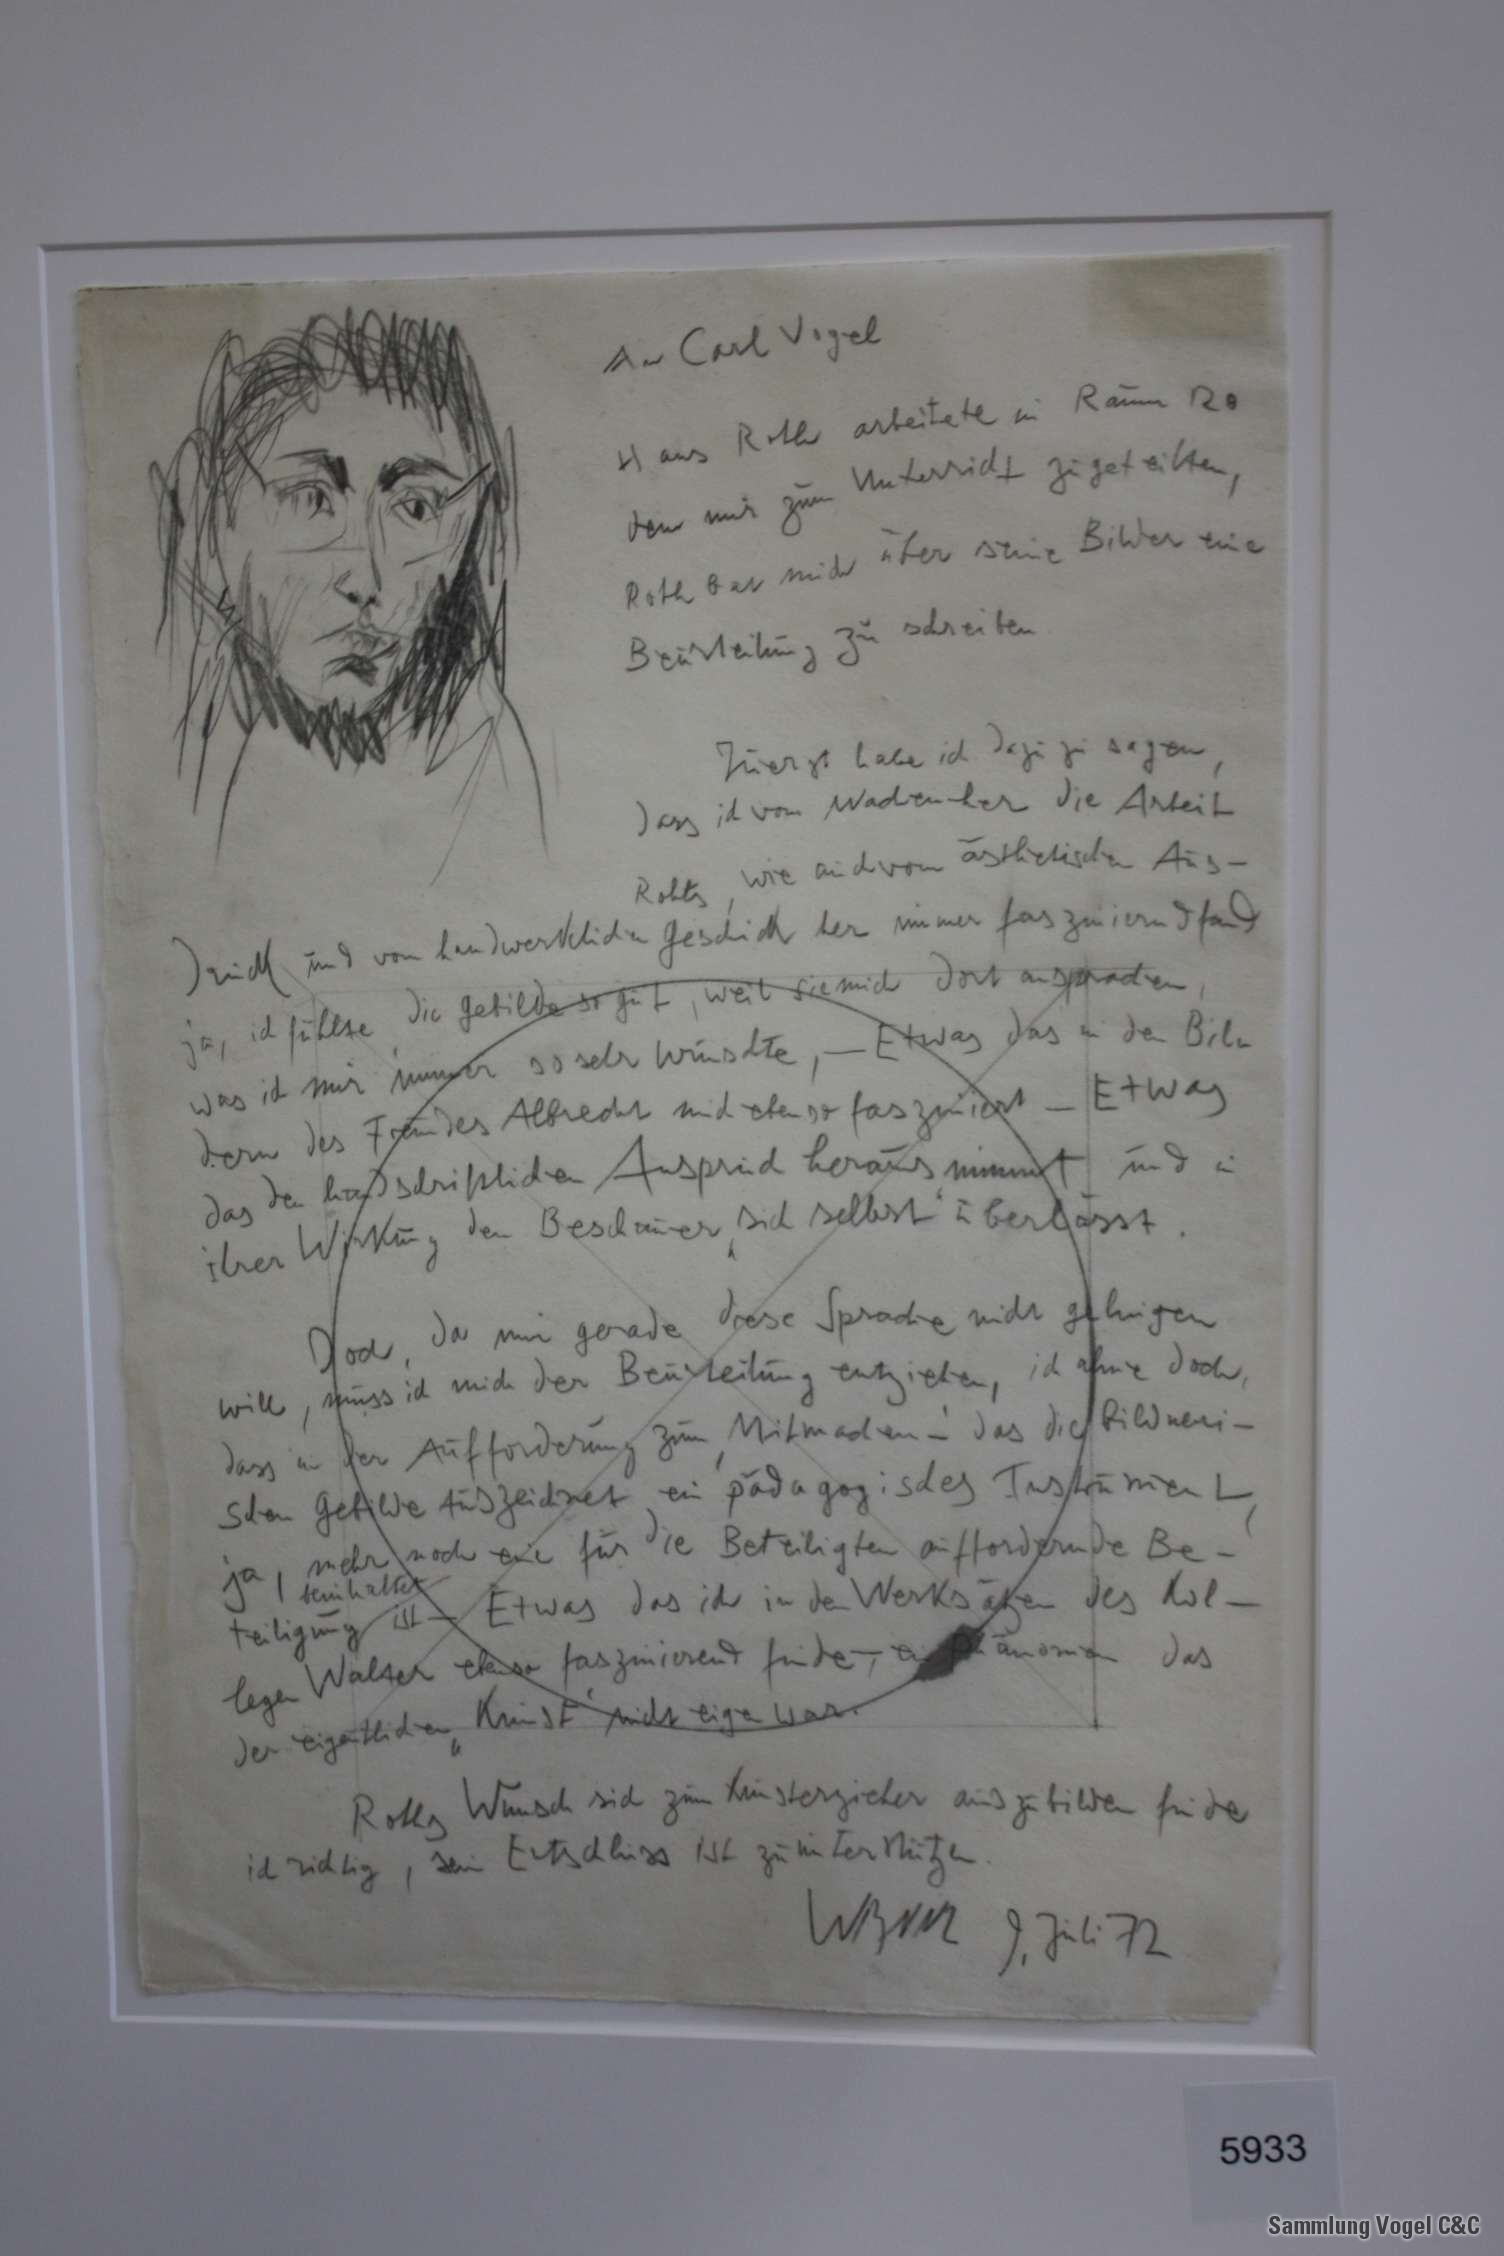 An Carl Vogel
Hans Roth arbeitete in Raum 120
dem mir zum Unterricht zugeteilten,
Roth bat mich über seine Bilder eine
Beurteilung zu schreiben
Zuerst habe ich dazu zu sagen,
dass ich vom Machen her die Arbeit
Roths, wie auch vom ästhetischen Aus-
druck und vom handwerklichen Geschick her immer faszinierend fand
ja, ich fühlte die Gebilde so gut, weil sie mich dort ansprachen,
was ich mir immer so sehr wünschte, — Etwas das in den Bil-
dern des Freundes Albrecht mich ebenso fasziniert — Etwas
das den handschriftlichen Anspruch herausnimmt und in
ihrer Wirkung den Beschauer „sich selbst" überlässt.
Doch, da mir gerade diese Sprache nicht gelingen
will, muss ich mich der Beurteilung entziehen, ich ahne doch,
dass in der Aufforderung zum Mitmachen – das die bildneri-
schen Gebilde auszeichnet ein pädagogisches Instrument,
ja, mehr noch eine für die Beteiligten auffordernde Be-
beinhaltet
teiligung ist — Etwas das ich in den Werksätzen des Kol-
legen Walter ebenso faszinierend finde –, ein Phänomen das
der eigentlichen „Kunst" nicht eigen war.
Roths Wunsch sich zum Kunsterzieher auszubilden finde
ich richtig, sein Entschluss ist zu unterstützen.
9. Juli 72
5933
Sammlung Vogel C&C